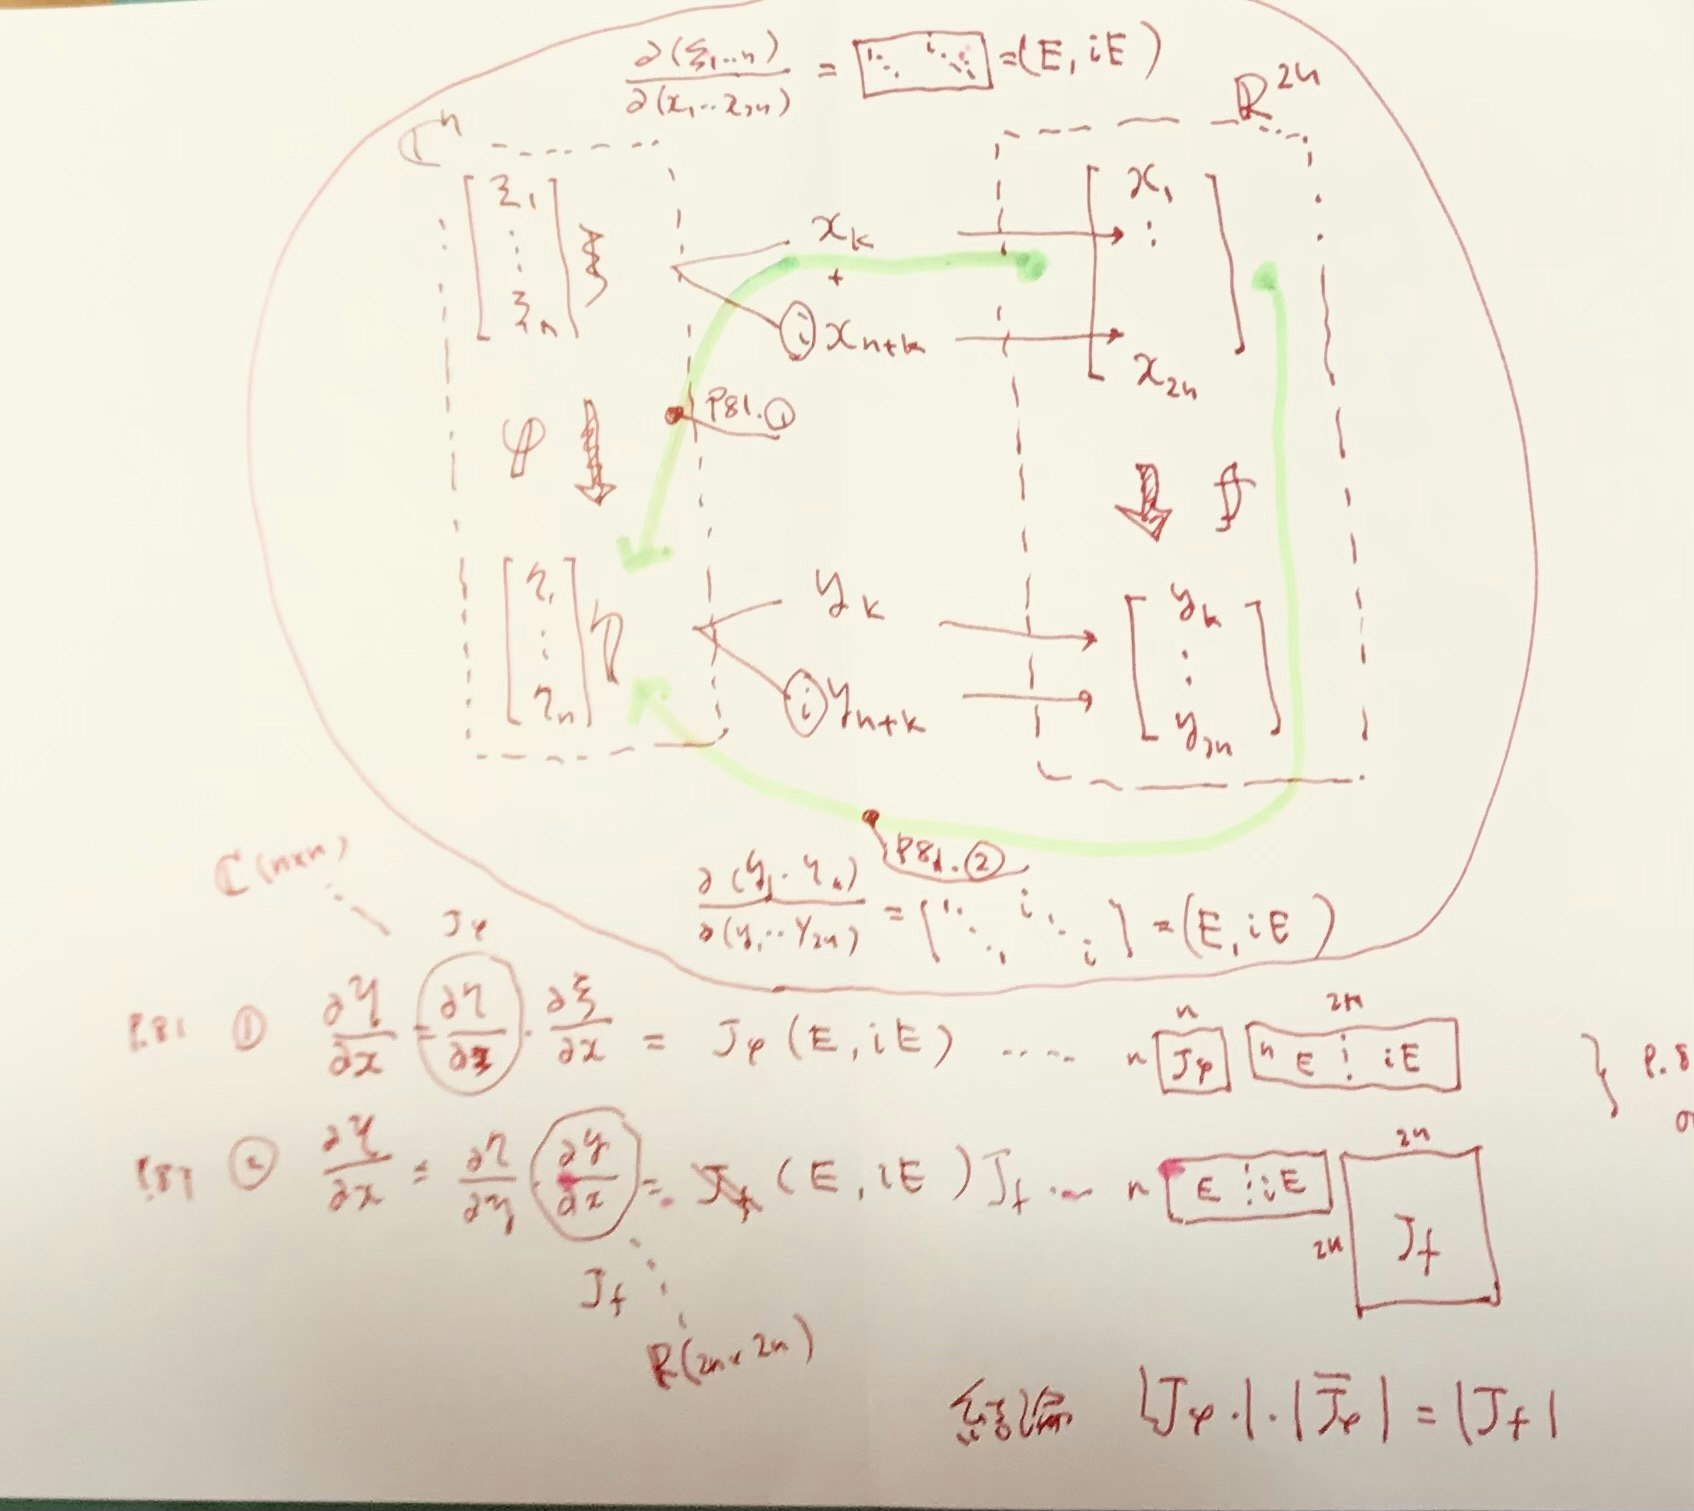 ∂(ξ₁…n) / ∂(x₁…x₂ₙ) = [1⋱ i⋱] = (E, iE)
ℂⁿ
ℝ²ⁿ
[ξ₁ ⋮ ξₙ] ξ
xₖ
+
ⓘ xₙ₊ₖ
[x₁ ⋮ x₂ₙ]
P81.①
φ ⇓
⇓ f
[η₁ ⋮ ηₙ] η
yₖ
ⓘ yₙ₊ₖ
[yₖ ⋮ y₂ₙ]
P81.②
∂(η₁…ηₙ) / ∂(y₁…y₂ₙ) = [1⋱ i⋱i] = (E, iE)
ℂ(n×n)
Jφ
P81 ① ∂η/∂x = ∂η/∂ξ · ∂ξ/∂x = Jφ(E, iE) ….. n [Jφ] n 2n n [E ⋮ iE]
P.8
P81 ② ∂η/∂x = ∂η/∂y · ∂y/∂x = (E, iE)J_f … n [E ⋮ iE] 2n 2n [J_f]
J_f
ℝ(2n×2n)
結論 |Jφ|·|J̅φ| = |J_f|